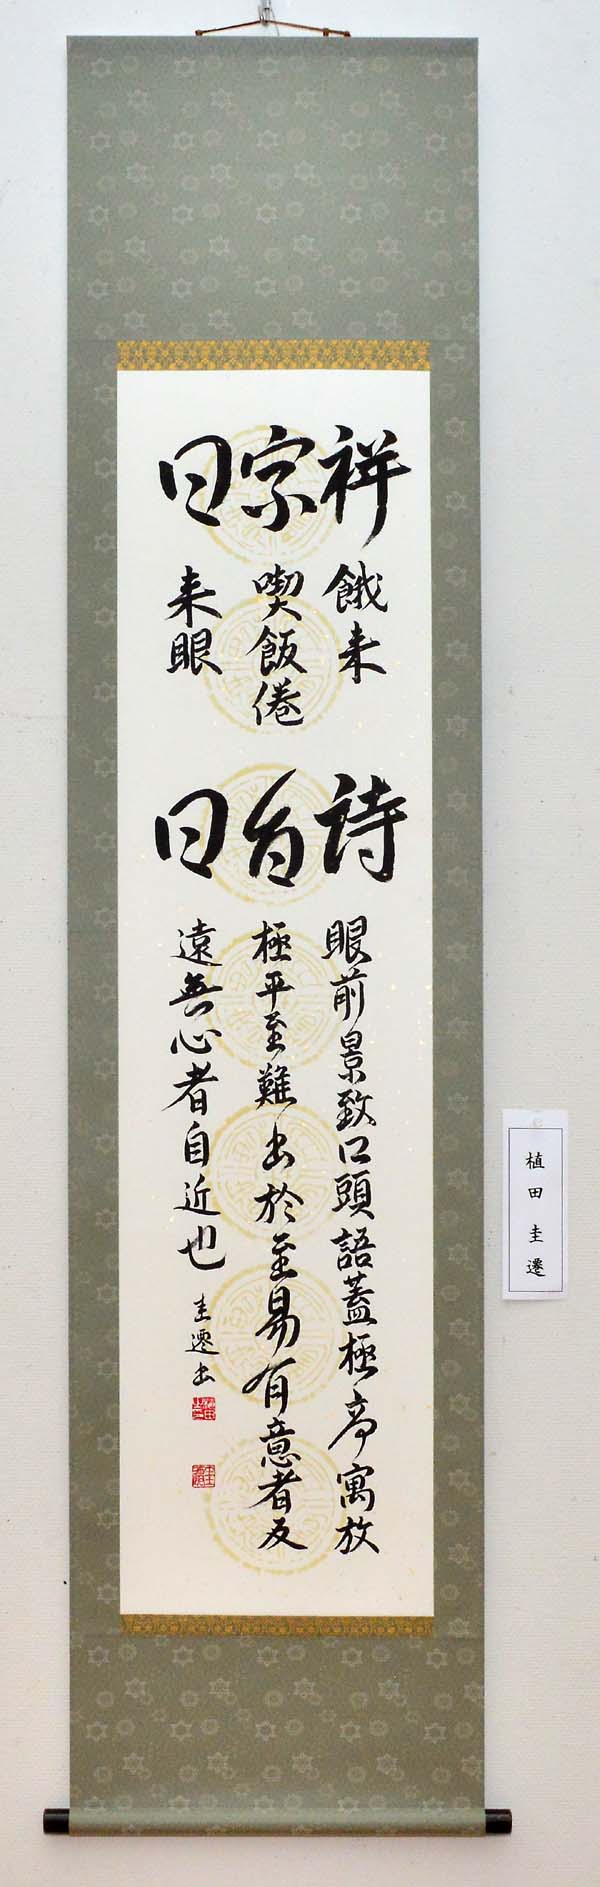 祥宗曰
餓来
喫飯倦
来眼
詩旨曰
眼前景致口頭語蓋極高寓放
極平至難出於至易有意者反
遠無心者自近也
圭遷書
植田圭遷